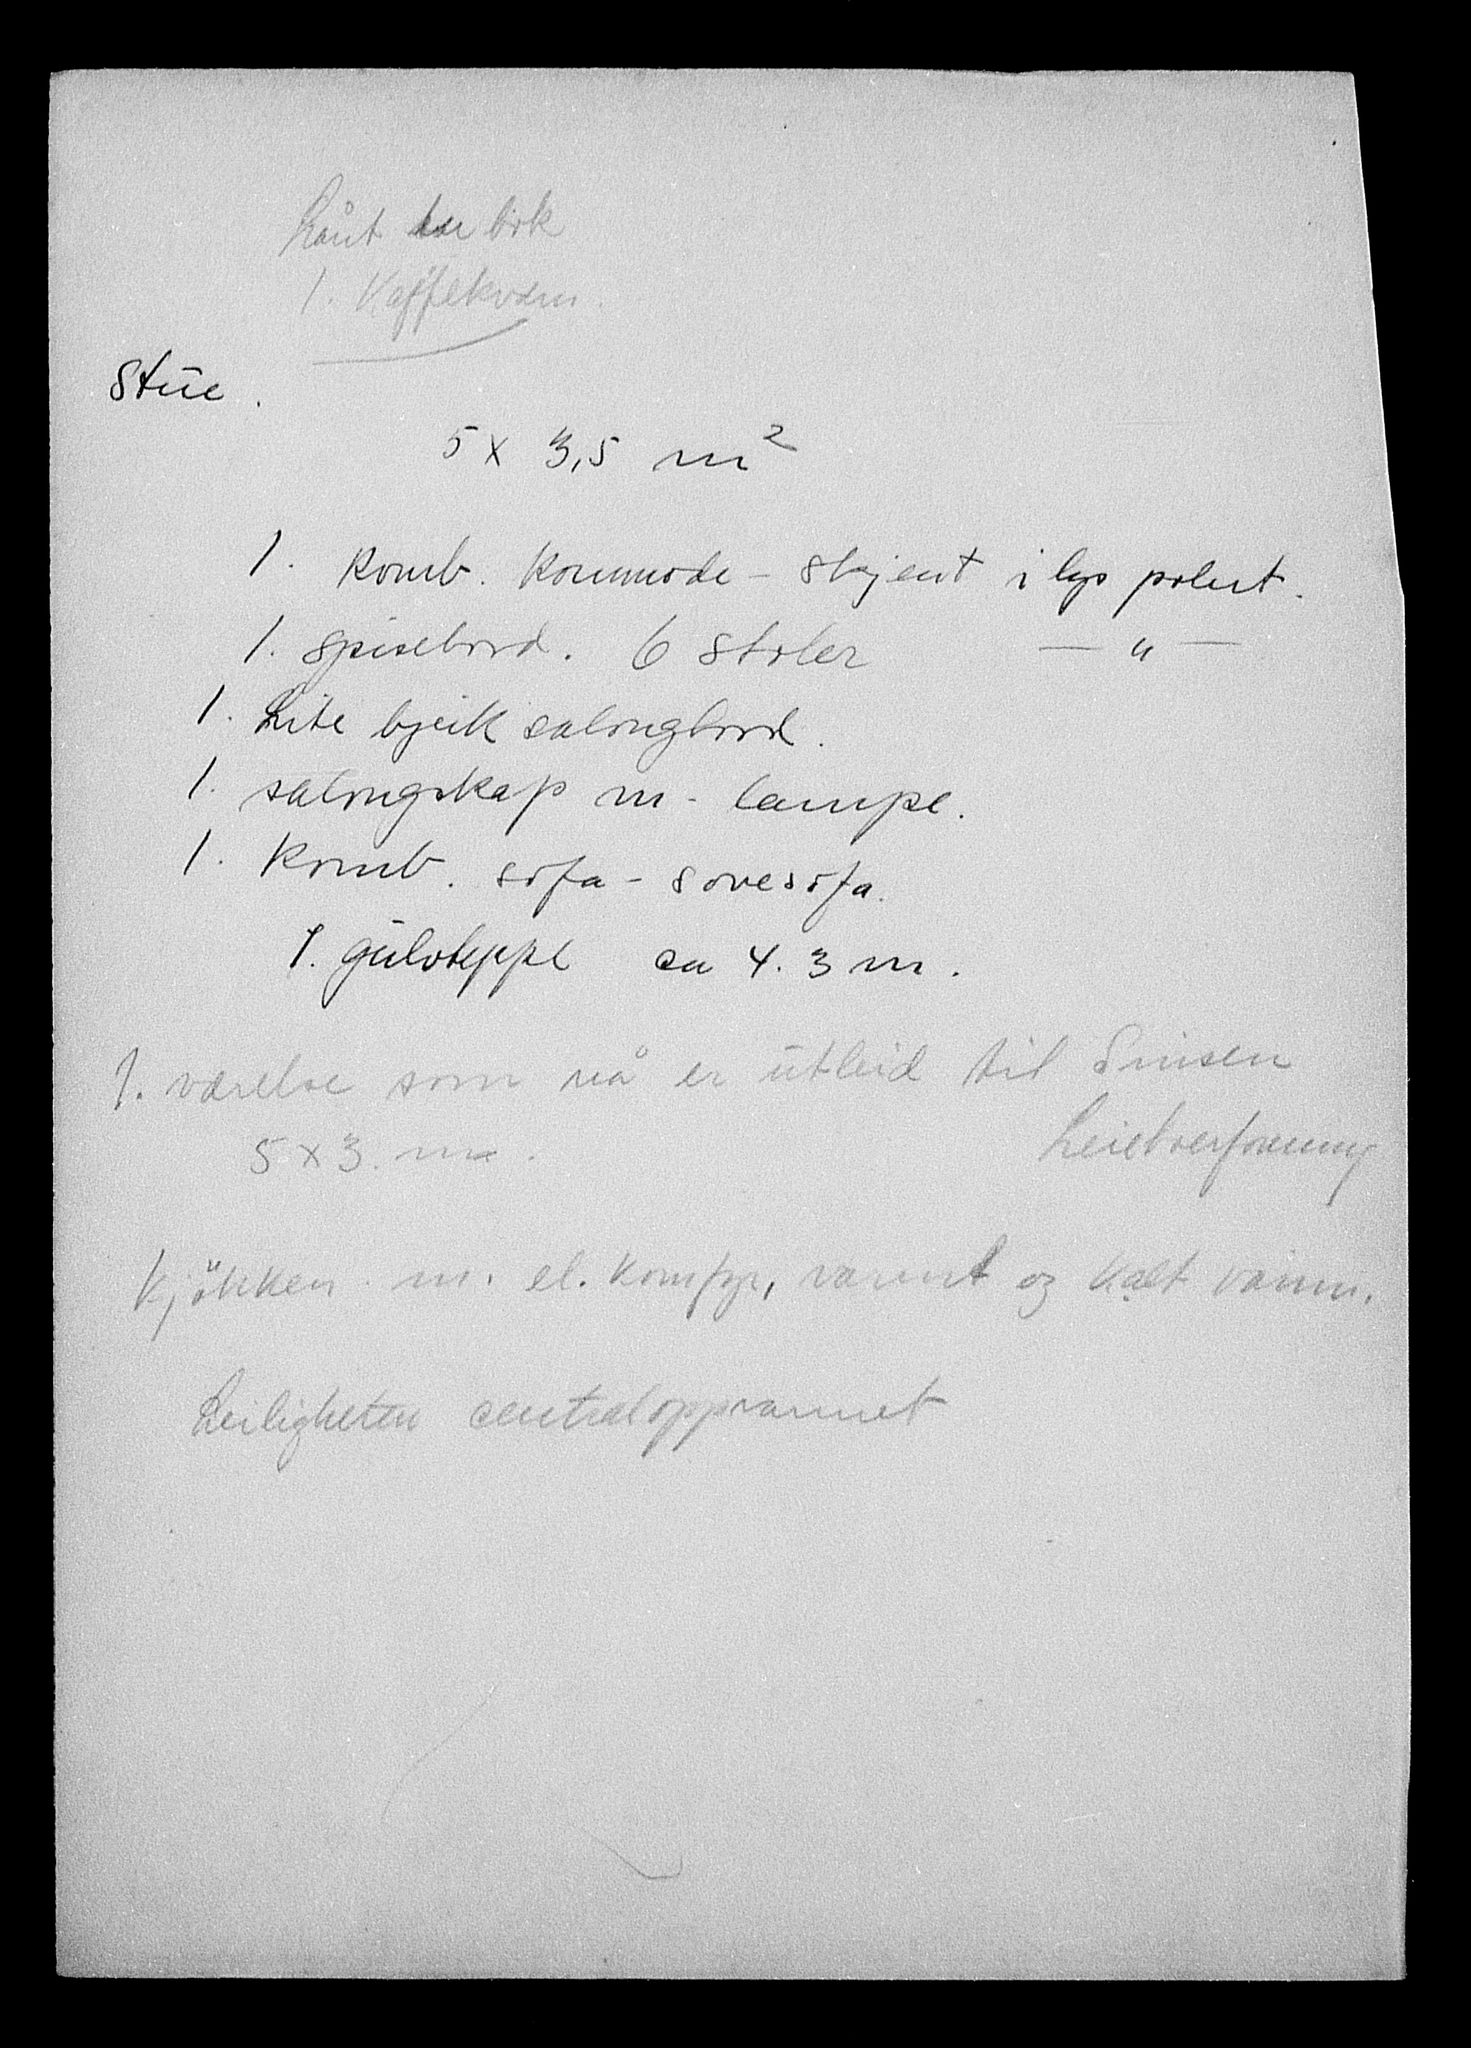 Lånt lærbok
1. Kaffekvern.
Stue.
5 x 3,5 m²
1. komb. kommode - skjent i lys polert.
1. spisebord. 6 stoler — " —
1. Lite bjerk salongbord.
1. salongskap m - lampe.
1. komb. sofa - sovesofa.
1. gulvteppe ca 4. 3 m.
1. værelse som nå er utleid til Sinsen
5 x 3. m. Leietverforening
Kjökken m. el. komfyr, varmt og kalt vann.
Leiligheten centraloppvarmet